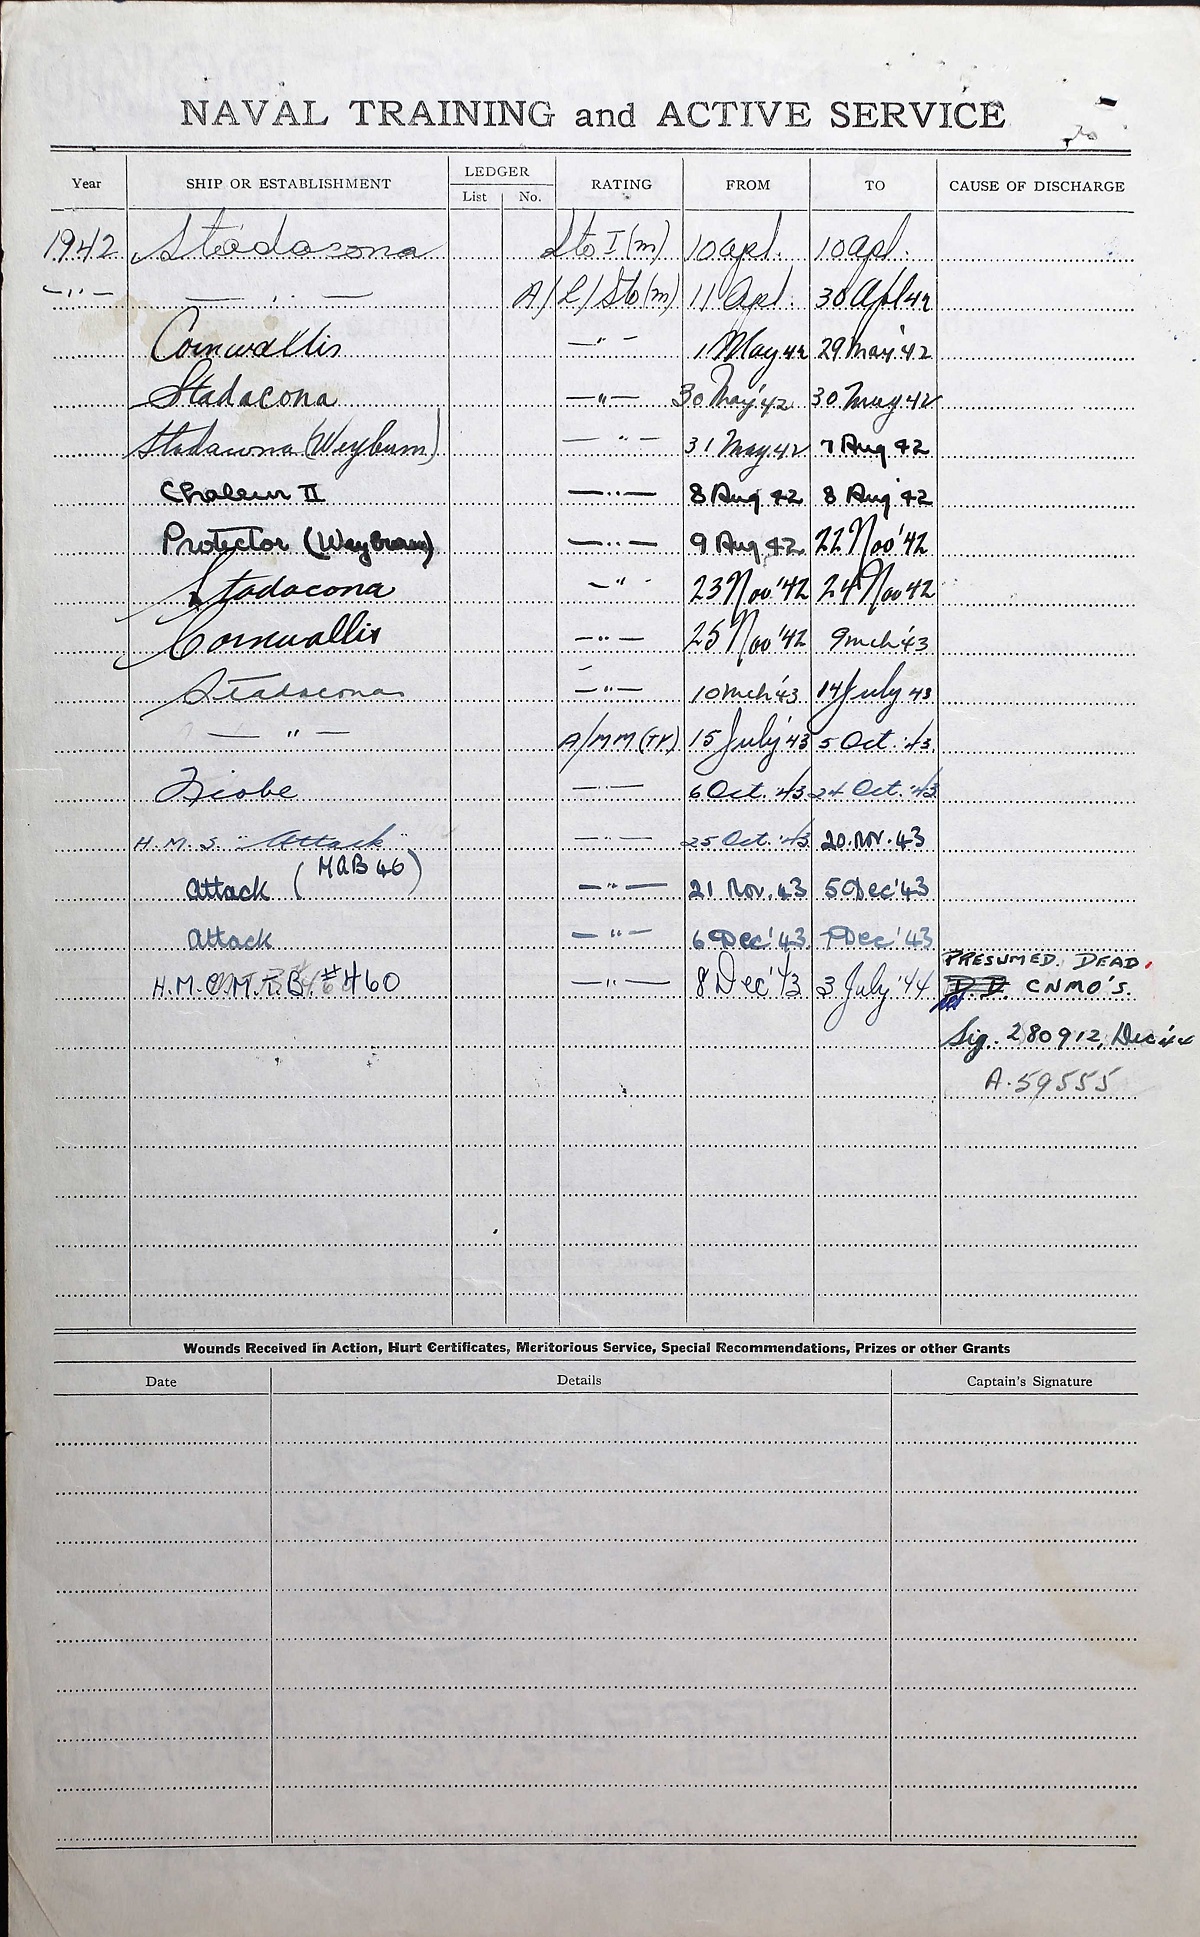 NAVAL TRAINING and ACTIVE SERVICE
Year SHIP OR ESTABLISHMENT LEDGER RATING FROM TO CAUSE OF DISCHARGE
List No.
1942 Stadacona Sto I (m) 10 apl. 10 apl.
—"— — " — A/L/Sto(m) 11 Apl. 30 Apl 42
Cornwallis —"— 1 May 42 29 May '42
Stadacona —"— 30 May '42 30 May 42
Stadacona (Weyburn) — " — 31 May 42 7 Aug 42
Chaleur II —"— 8 Aug 42 8 Aug 42
Protector (Weyburn) —"— 9 Aug 42 22 Nov '42
Stadacona —"— 23 Nov '42 24 Nov 42
Cornwallis —"— 25 Nov '42 9 mch '43
Stadacona —"— 10 mch '43 14 July 43
— " — A/MM (TY) 15 July '43 5 Oct. '43
Niobe —"— 6 Oct. '43 24 Oct. '43
H.M.S. "Attack" —"— 25 Oct. '43 20. Nov. 43
Attack (MGB 46) —"— 21 Nov. 43 5 Dec '43
Attack —"— 6 Dec '43 7 Dec '43
H.M.C.M.T.B. #460 —"— 8 Dec '43 3 July '44 PRESUMED DEAD.
D.D. CNMO'S.
Sig. 280912, Dec '44
A. 59555
Wounds Received in Action, Hurt Certificates, Meritorious Service, Special Recommendations, Prizes or other Grants
Date Details Captain's Signature